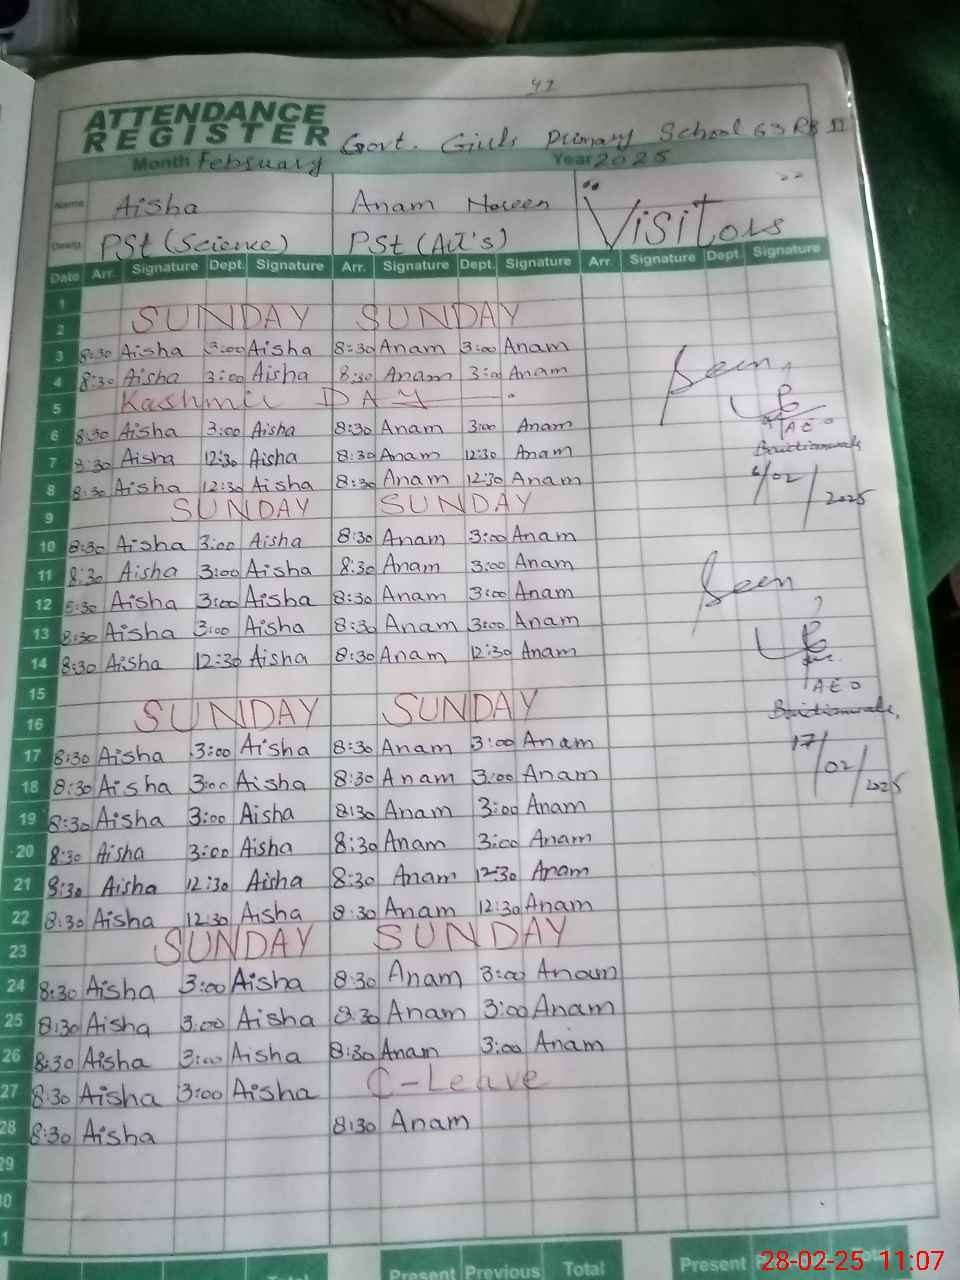 41
ATTENDANCE
REGISTER Govt. Girls Primary School 63 RB II
Month February Year 2025
Name Aisha Anam Noreen
Desig. PSt (Science) PSt (Art's) "Visitors"
Date Arr. Signature Dept. Signature Arr. Signature Dept. Signature Arr. Signature Dept. Signature
1
2 SUNDAY SUNDAY
3 8:30 Aisha 3:00 Aisha 8:30 Anam 3:00 Anam
4 8:30 Aisha 3:00 Aisha 8:30 Anam 3:00 Anam Seen
5 Kashmir DAY
6 8:30 Aisha 3:00 Aisha 8:30 Anam 3:00 Anam AEO
7 8:30 Aisha 12:30 Aisha 8:30 Anam 12:30 Anam
8 8:30 Aisha 12:30 Aisha 8:30 Anam 12:30 Anam 6/02/2025
9 SUNDAY SUNDAY
10 8:30 Aisha 3:00 Aisha 8:30 Anam 3:00 Anam
11 8:30 Aisha 3:00 Aisha 8:30 Anam 3:00 Anam Seen
12 8:30 Aisha 3:00 Aisha 8:30 Anam 3:00 Anam
13 8:30 Aisha 3:00 Aisha 8:30 Anam 3:00 Anam
14 8:30 Aisha 12:30 Aisha 8:30 Anam 12:30 Anam
15 AEO
16 SUNDAY SUNDAY
17 8:30 Aisha 3:00 Aisha 8:30 Anam 3:00 Anam 17/02/2025
18 8:30 Aisha 3:00 Aisha 8:30 Anam 3:00 Anam
19 8:30 Aisha 3:00 Aisha 8:30 Anam 3:00 Anam
20 8:30 Aisha 3:00 Aisha 8:30 Anam 3:00 Anam
21 8:30 Aisha 12:30 Aisha 8:30 Anam 12:30 Anam
22 8:30 Aisha 12:30 Aisha 8:30 Anam 12:30 Anam
23 SUNDAY SUNDAY
24 8:30 Aisha 3:00 Aisha 8:30 Anam 3:00 Anam
25 8:30 Aisha 3:00 Aisha 8:30 Anam 3:00 Anam
26 8:30 Aisha 3:00 Aisha 8:30 Anam 3:00 Anam
27 8:30 Aisha 3:00 Aisha C-Leave
28 8:30 Aisha 8:30 Anam
29
30
1
Total Present Previous Total Present Total
28-02-25 11:07